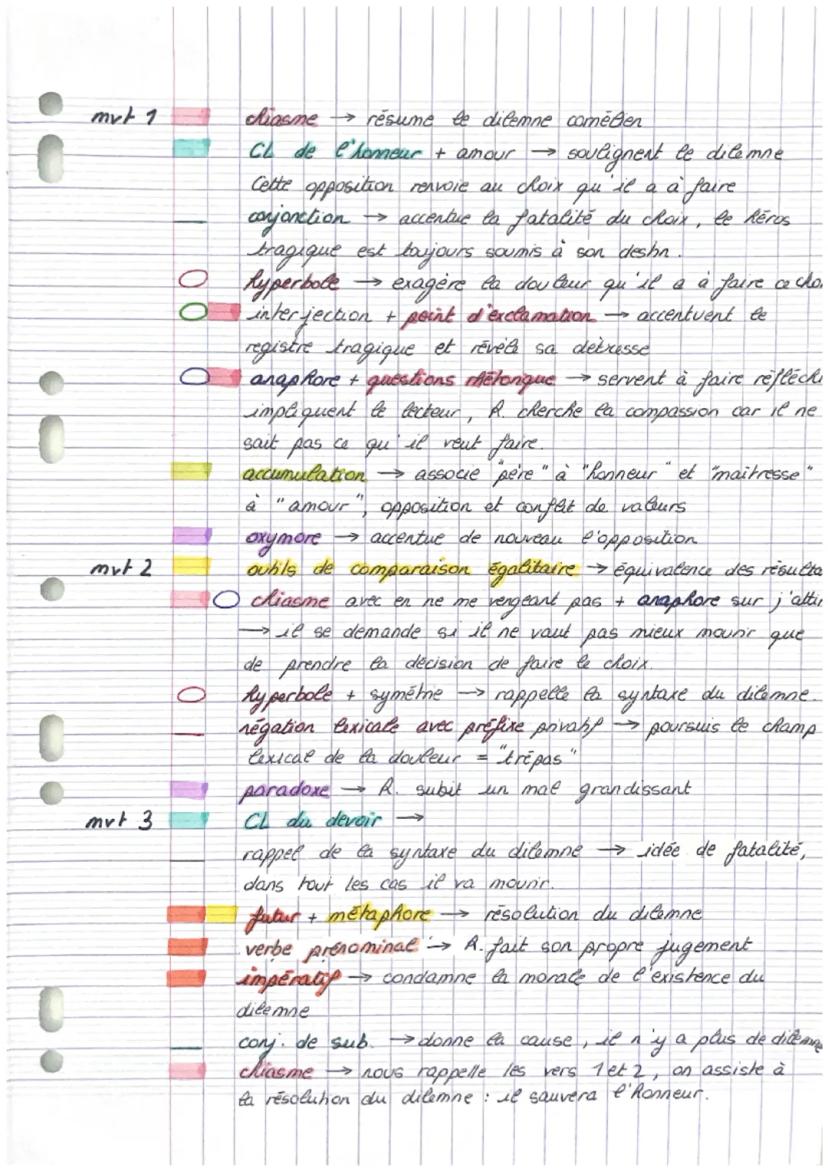 mvt 1 chiasme → résume le dilemne cornélien
CL de l'honneur + amour → soulignent le dilemne
Cette opposition renvoie au choix qu'il a à faire
conjonction → accentue la fatalité du choix, le héros
tragique est toujours soumis à son destin.
hyperbole → exagère la douleur qu'il a à faire ce cho
interjection + point d'exclamation → accentuent le
registre tragique et révèle sa detresse
anaphore + questions rhétorique → servent à faire réfléchi
impliquent le lecteur, R. cherche la compassion car il ne
sait pas ce qu'il veut faire.
accumulation → associe "père" à "honneur" et "maîtresse"
à "amour", opposition et conflit de valeurs
oxymore → accentue de nouveau l'opposition
mvt 2 outils de comparaison égalitaire → équivalence des résulta
chiasme avec en ne me vengeant pas + anaphore sur j'attir
→ il se demande si il ne vaut pas mieux mourir que
de prendre la décision de faire le choix.
hyperbole + symétrie → rappelle la syntaxe du dilemne.
négation lexicale avec préfixe privatif → poursuis le champ
lexical de la douleur = "trépas"
paradoxe → R. subit un mal grandissant
mvt 3 CL du devoir →
rappel de la syntaxe du dilemne → idée de fatalité,
dans tout les cas il va mourir.
futur + métaphore → résolution du dilemne
verbe prénominal → R. fait son propre jugement
impératif → condamne la morale de l'existence du
dilemne
conj. de sub. → donne la cause, il n'y a plus de dilemne
chiasme → nous rappelle les vers 1 et 2, on assiste à
la résolution du dilemne : il sauvera l'honneur.